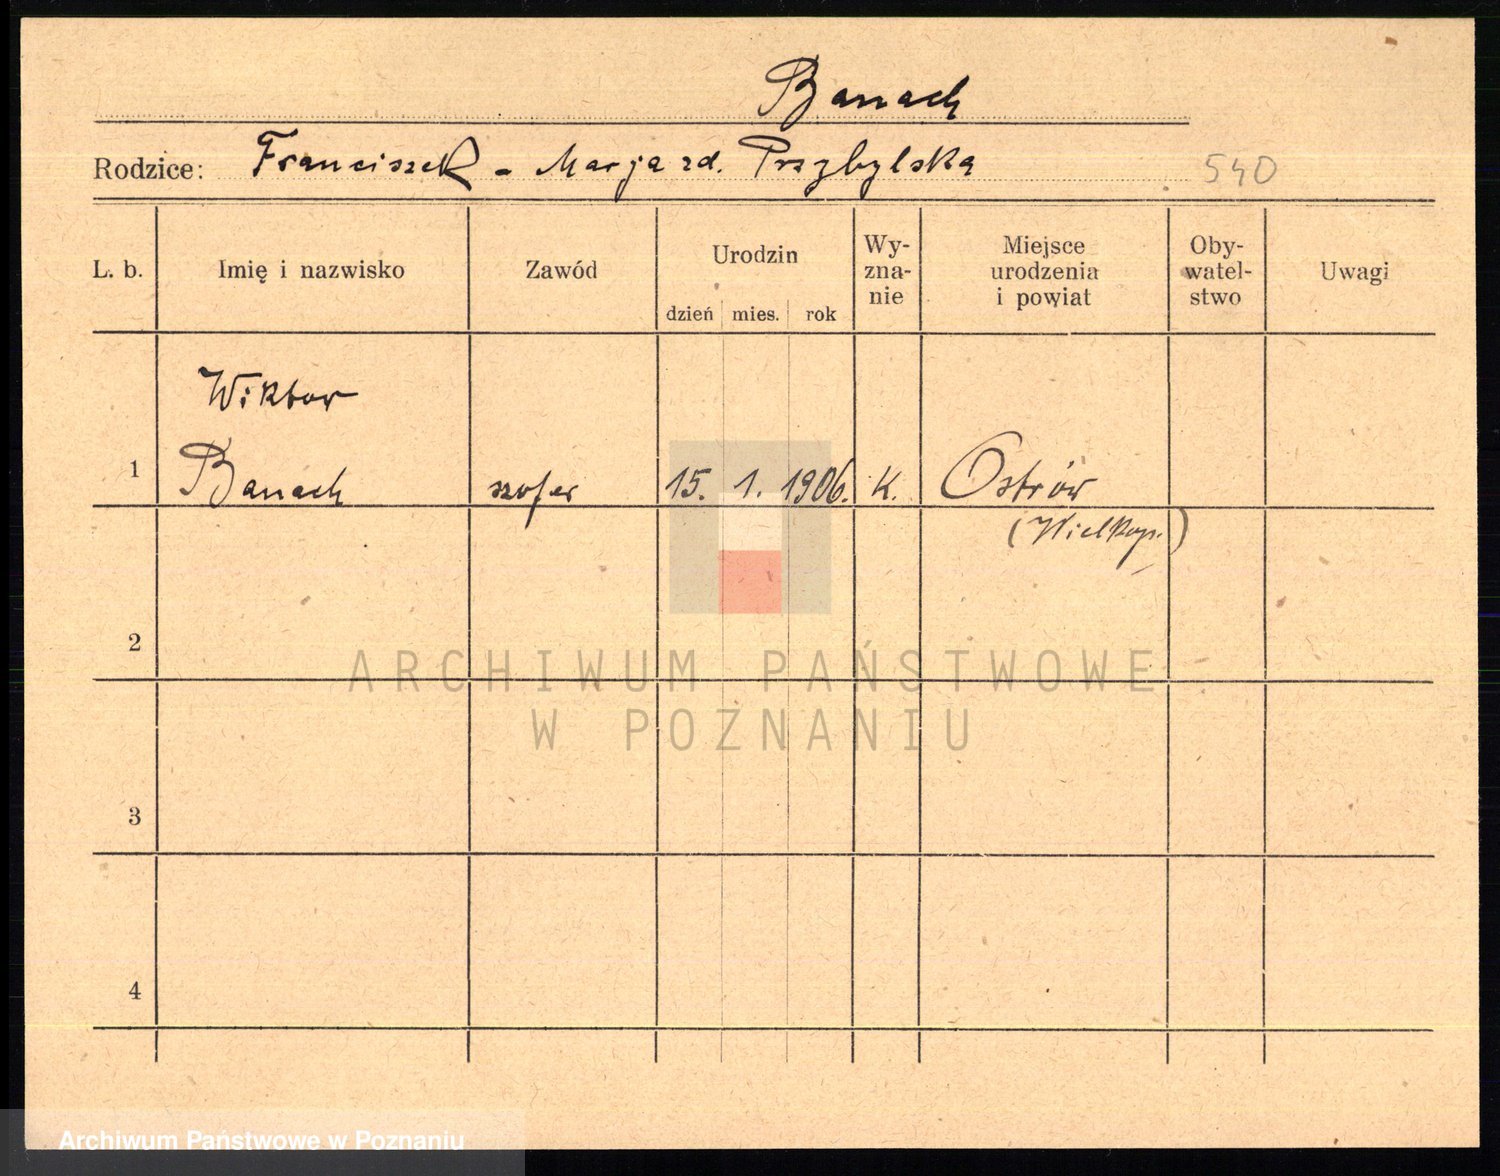 Banach
Rodzice: Franciszek - Marja zd. Przybylska
540
L. b. Imię i nazwisko Zawód Urodzin dzień mies. rok Wy-zna-nie Miejsce urodzenia i powiat Oby-watel-stwo Uwagi
Wiktor
1 Banach szofer 15. 1. 1906. K. Ostrów
(Wielkop.)
2
ARCHIWUM PAŃSTWOWE
W POZNANIU
3
4
Archiwum Państwowe w Poznaniu